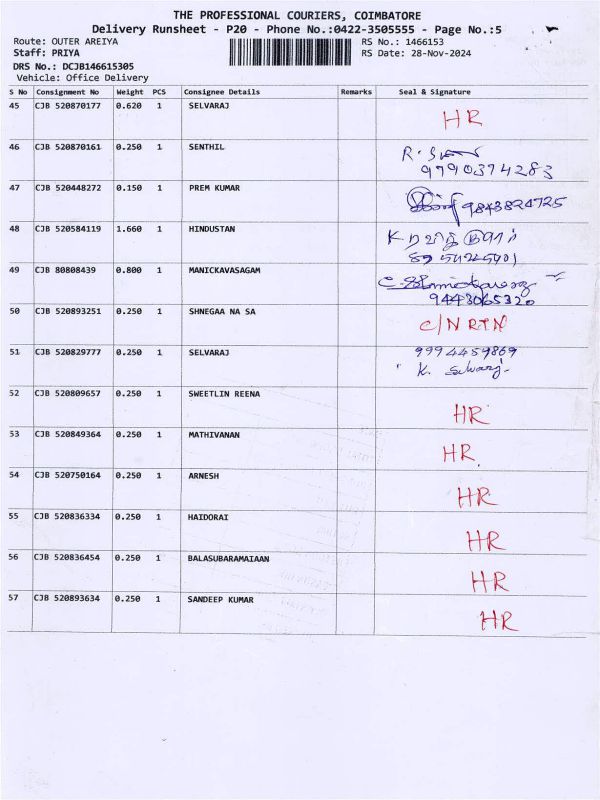 THE PROFESSIONAL COURIERS, COIMBATORE
Delivery Runsheet - P20 - Phone No.:0422-3505555 - Page No.:5
Route: OUTER AREIYA RS No.: 1466153
Staff: PRIYA RS Date: 28-Nov-2024
DRS No.: DCJB146615305
Vehicle: Office Delivery
S No Consignment No Weight PCS Consignee Details Remarks Seal & Signature
45 CJB 520870177 0.620 1 SELVARAJ HR
46 CJB 520870161 0.250 1 SENTHIL
9790374283
47 CJB 520448272 0.150 1 PREM KUMAR 9843824725
48 CJB 520584119 1.660 1 HINDUSTAN
49 CJB 80808439 0.800 1 MANICKAVASAGAM
9443065320
50 CJB 520893251 0.250 1 SHNEGAA NA SA C/N RTN
51 CJB 520829777 0.250 1 SELVARAJ 9994459869
K. Selvaraj
52 CJB 520809657 0.250 1 SWEETLIN REENA HR
53 CJB 520849364 0.250 1 MATHIVANAN HR
54 CJB 520750164 0.250 1 ARNESH HR
55 CJB 520836334 0.250 1 HAIDORAI HR
56 CJB 520836454 0.250 1 BALASUBARAMAIAAN HR
57 CJB 520893634 0.250 1 SANDEEP KUMAR HR